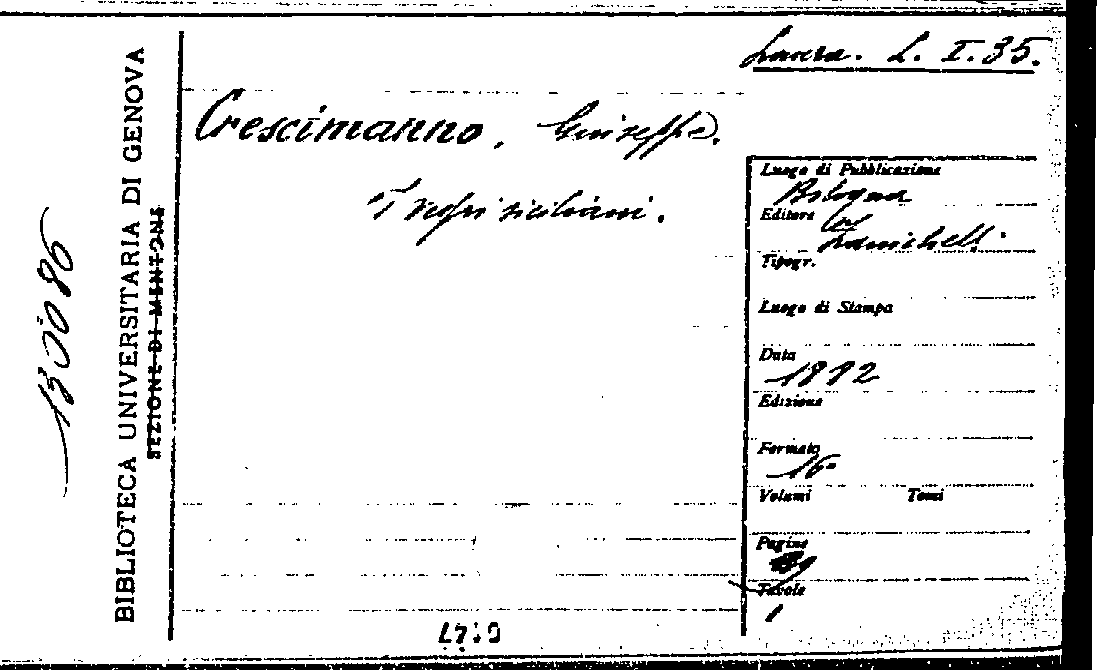 Laura. L. I. 35.
Crescimanno, Giuseppe.
siciliani.
Luogo di Pubblicazione
Bologna
Editore
Zanichelli
Tipogr.
Luogo di Stampa
Data
1892
Edizione
Formato
16°
Volumi Tomi
Pagine
Tavole
1
BIBLIOTECA UNIVERSITARIA DI GENOVA
SEZIONE DI MENTONE
130086